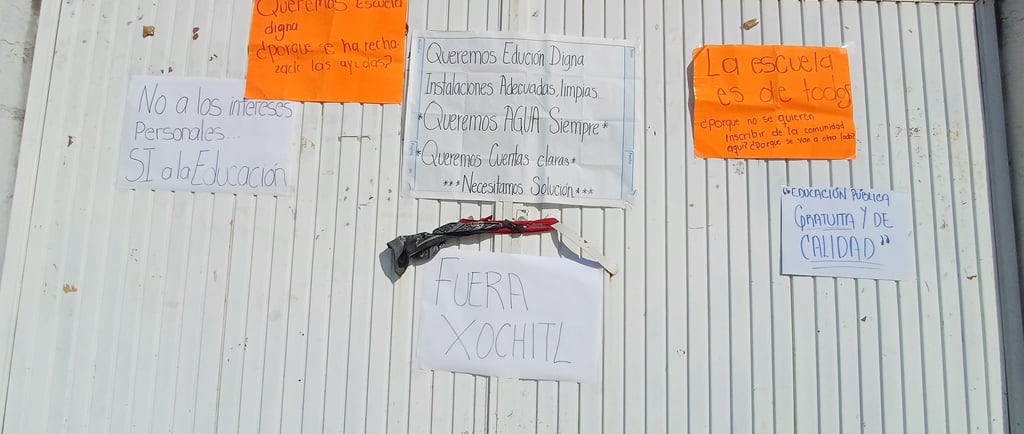 Queremos Escuela
digna
¿Porque se ha recha-
zado las ayudas?
No a los intereses
Personales...
SI a la Educación
Queremos Edución Digna
Instalaciones Adecuadas, limpias
*Queremos AGUA Siempre*
*Queremos Cuentas claras*
***Necesitamos Solución***
FUERA
XOCHITL
La escuela
es de todos
¿Porque no se quieren
Inscribir de la comunidad
aqui? ¿Porque se van a otro lado?
"EDUCACIÓN PÚBLICA
GRATUITA Y DE
CALIDAD"